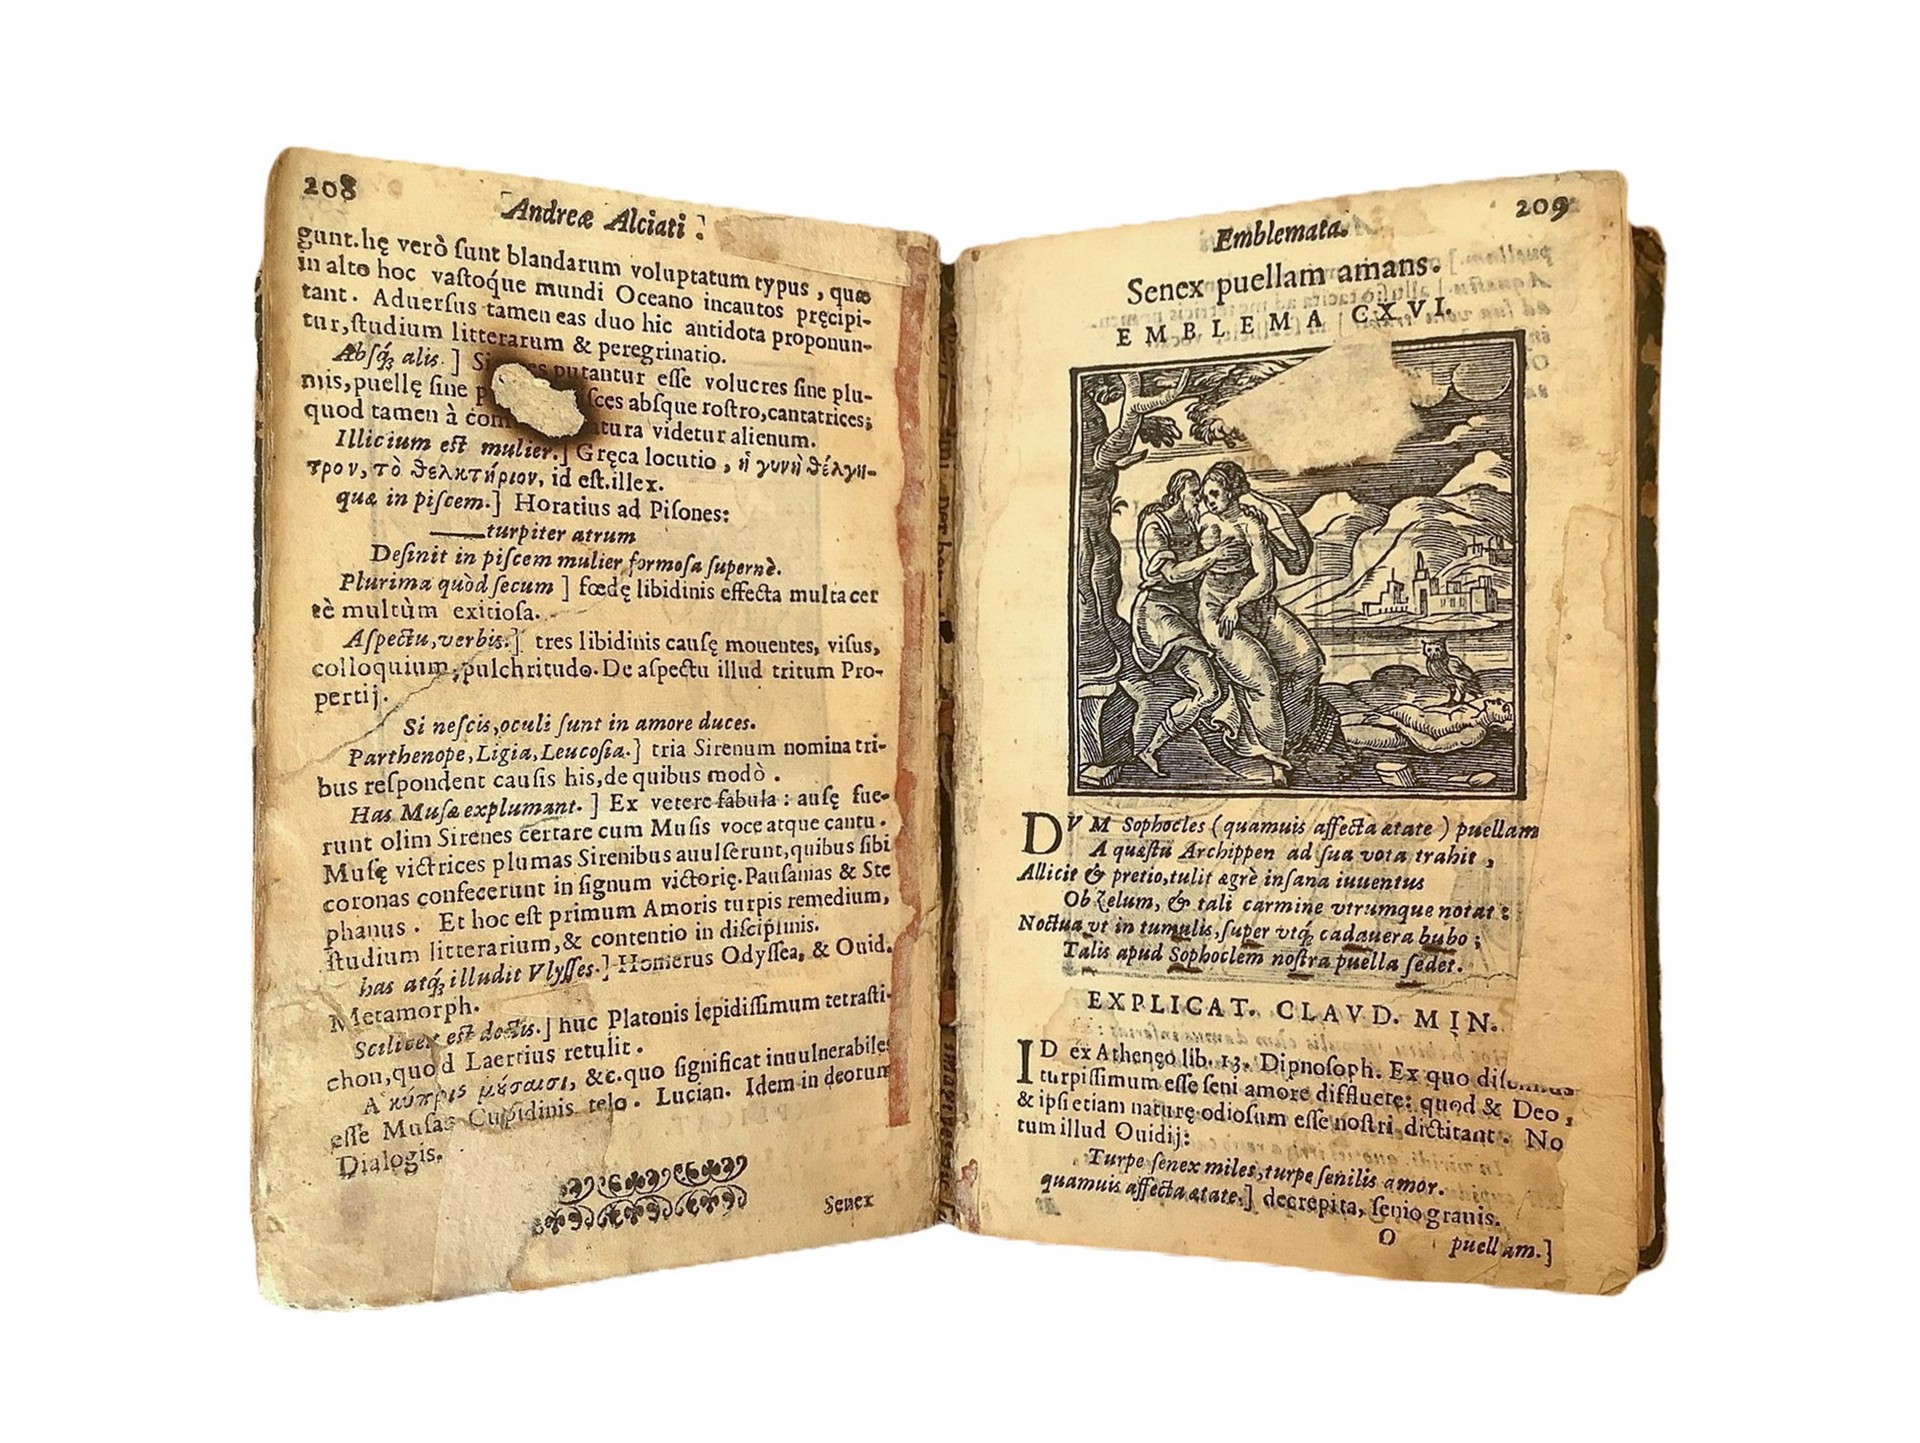 208
Andreæ Alciati
gunt.hę verò ſunt blandarum voluptatum typus, quæ
in alto hoc vaſtoque mundi Oceano incautos pręcipi-
tant. Aduerſus tamen eas duo hic antidota proponun-
tur, ſtudium litterarum & peregrinatio.
Abſq́ʒ alis.] putantur eſſe volucres ſine plu-
mis, puellę ſine abſque roſtro, cantatrices;
quod tamen à videtur alienum.
Illicium eſt mulier.] Gręca locutio, ἡ γυνὴ θέλγη-
τρον, τὸ θελκτήριον, id eſt. illex.
quæ in piſcem.] Horatius ad Piſones:
——turpiter atrum
Deſinit in piſcem mulier formoſa ſupernè.
Plurima quòd ſecum] fœdę libidinis effecta multa cer
tè multùm exitioſa.
Aſpectu, verbis.] tres libidinis cauſę mouentes, viſus,
colloquium, pulchritudo. De aſpectu illud tritum Pro-
pertij.
Si neſcis, oculi ſunt in amore duces.
Parthenope, Ligia, Leucoſia.] tria Sirenum nomina tri-
bus reſpondent cauſis his, de quibus modò.
Has Muſæ explumant.] Ex vetere fabula: auſę fue-
runt olim Sirenes certare cum Muſis voce atque cantu.
Muſę victrices plumas Sirenibus auulſerunt, quibus ſibi
coronas confecerunt in ſignum victorię. Pauſanias & Ste
phanus. Et hoc eſt primum Amoris turpis remedium,
ſtudium litterarium, & contentio in diſciplinis.
has atq́ʒ illudit Vlyſſes.] Homerus Odyſſea, & Ouid.
Metamorph.
Scilicet eſt doctis.] huc Platonis lepidiſſimum tetraſti-
chon, quod Laertius retulit.
Α κύπρις μέσαισι, &c. quo ſignificat inuulnerabiles
eſſe Muſas Cupidinis telo. Lucian. Idem in deorum
Dialogis.
Senex
209
Emblemata.
Senex puellam amans.
EMBLEMA CXVI.
DVM Sophocles (quamuis affecta ætate) puellam
A quæſtu Archippen ad ſua vota trahit,
Allicit & pretio, tulit ægrè inſana iuuentus
Ob Zelum, & tali carmine vtrumque notat:
Noctua vt in tumulis, ſuper vtq́ʒ cadauera bubo;
Talis apud Sophoclem noſtra puella ſedet.
EXPLICAT. CLAVD. MIN.
ID ex Athenęo lib. 13. Dipnoſoph. Ex quo
turpiſſimum eſſe ſeni amore diffluere: quod & Deo,
& ipſi etiam naturę odioſum eſſe noſtri dictitant. No
tum illud Ouidij:
Turpe ſenex miles, turpe ſenilis amor.
quamuis affecta ætate.] decrepita, ſenio grauis.
O puellam.]